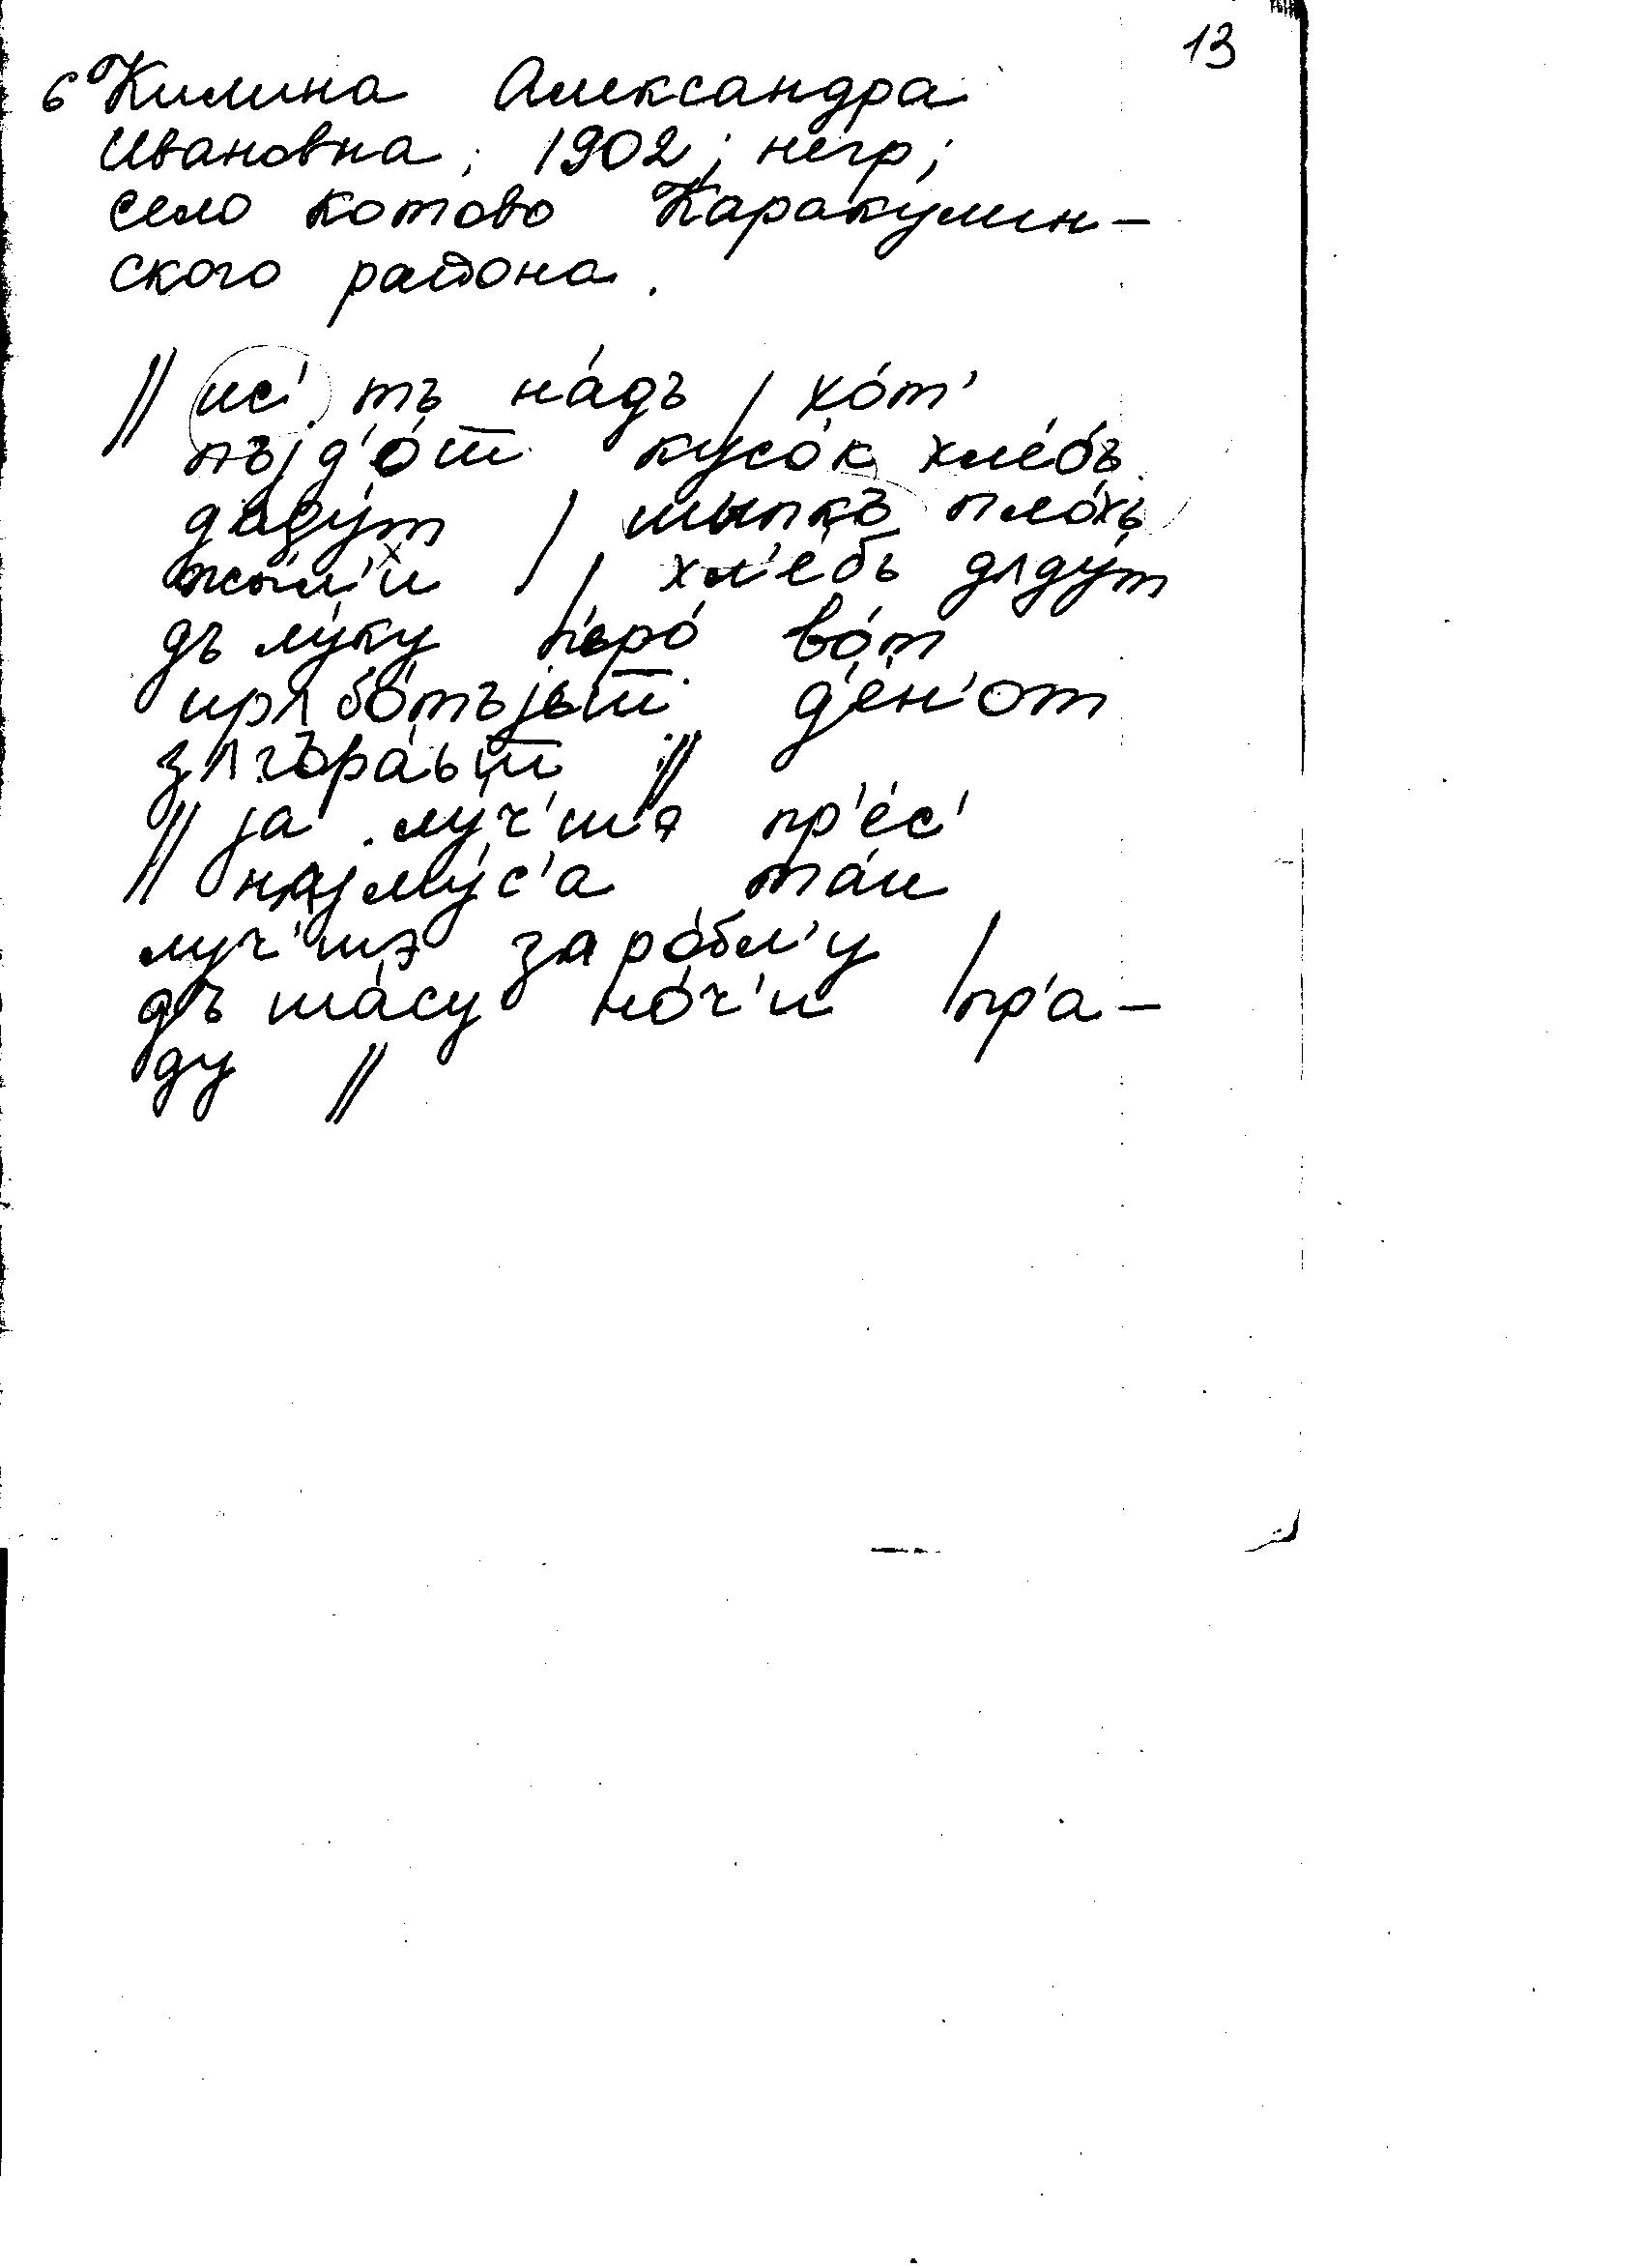 13
6 Килина Александра
Ивановна; 1902; негр;
село Котово Каракулин-
ского района.
// ис' тъ на́дъ / хо́т'
пъјд'о́ш кусо́к хле́бъ
дʌду́т / шыпкъ пло́хъ
жы́л'и // хл'е́бъ дʌду́т
дъ лу́ку п'ьро́ во́т
ирʌбо́тъјьш д'е́н'от
зʌгъра́ьш //
// ја лу́ч'шэ пр'е́с'
// нʌјму́с'а та́м
луч'шэ заро́бл'у /
дъ ша́су но́ч'и пр'а-
ду //